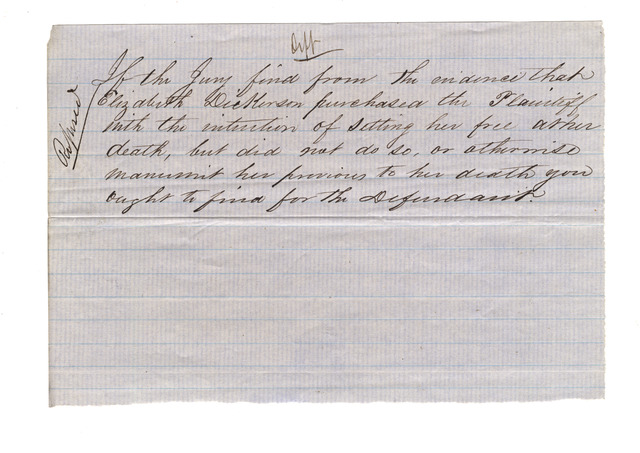 Deft
Refused
If the Jury find from the evidence that
Elizabeth Dickerson purchased the Plaintiff
with the intention of setting her free at her
death, but did not do so, or otherwise
manumit her previous to her death you
ought to find for the Defendant.